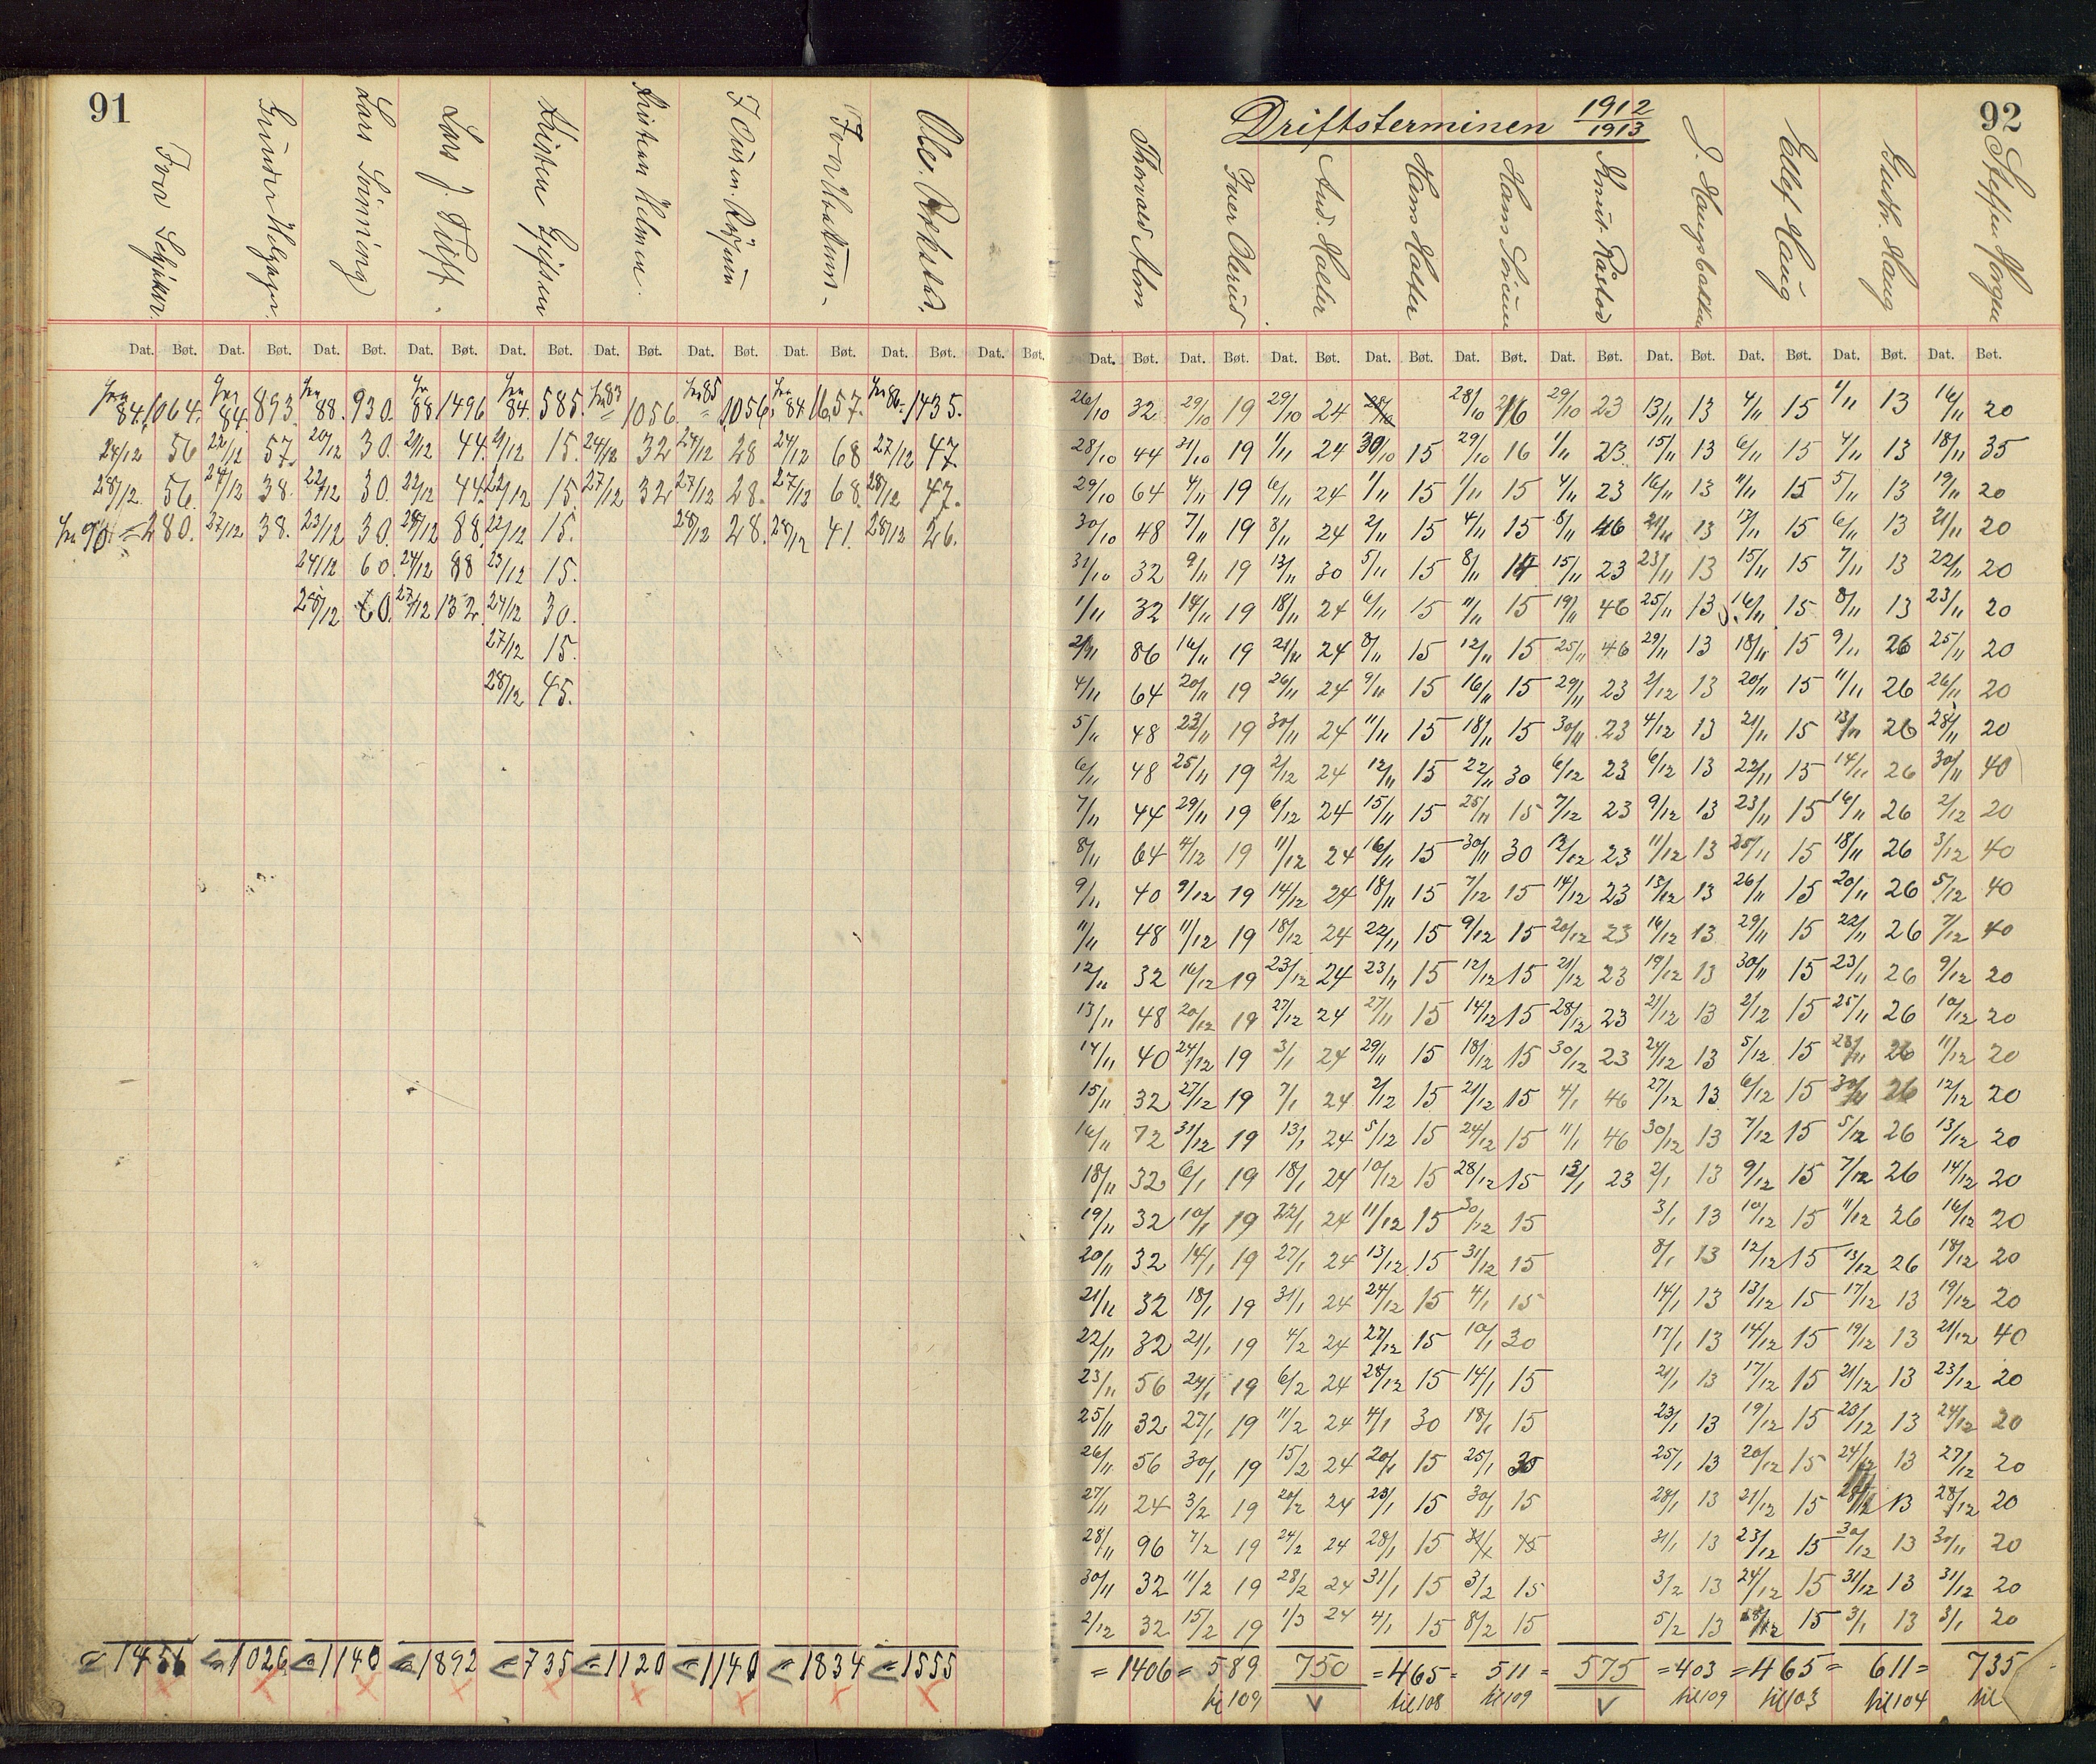 91
Gunder Helgager.
Lars Sönning
Lars J. Tüff.
Kristen Gjefsen
Kristian Helmen.
Iver Haakum.
Ole. Rekstad.
Dat. Bøt. Dat. Bøt. Dat. Bøt. Dat. Bøt. Dat. Bøt. Dat. Bøt. Dat. Bøt. Dat. Bøt. Dat. Bøt. Dat. Bøt.
fra 84. 1064. fra 84. 893. fra 88. 930. fra 88 1496 fra 84. 585. fra 83 = 1056. fra 85 = 1056. fra 84. 1657. fra 86. 1435.
24/12 56 22/12 57. 20/12 30. 21/12 44. 21/12 15. 24/12 32 24/12 28 24/12 68 27/12 47.
28/12. 56. 24/12 38. 22/12 30. 22/12 44. 22/12 15. 27/12 32 27/12 28. 27/12 68. 28/12 47.
fra 90 = 280. 27/12 38. 23/12 30. 23/12 88. 22/12 15. 28/12 28. 28/12 41. 28/12 26.
24/12 60. 24/12 88 23/12 15.
28/12 60. 27/12 132. 24/12 30.
27/12 15.
28/12 45.
= 1456 = 1026 = 1140 = 1892 = 735 = 1120 = 1140 = 1834 = 1555
92
Driftsterminen 1912/1913
Thorvald Alm
Iver Olerud
And. Holter
Hans Holter
Hans Sörum
Knut Råstad
J. Haugsbakken
Ellef Haug
Gudbr. Haug
Steffen Horgen
Dat. Bøt. Dat. Bøt. Dat. Bøt. Dat. Bøt. Dat. Bøt. Dat. Bøt. Dat. Bøt. Dat. Bøt. Dat. Bøt. Dat. Bøt.
26/10 32 29/10 19 29/10 24 28/10 28/10 16 29/10 23 13/11 13 4/11 15 1/11 13 16/11 20
28/10 44 31/10 19 1/11 24 30/10 15 29/10 16 1/11 23 15/11 13 6/11 15 4/11 13 18/11 35
29/10 64 4/11 19 6/11 24 1/11 15 1/11 15 4/11 23 16/11 13 11/11 15 5/11 13 19/11 20
30/10 48 7/11 19 8/11 24 2/11 15 4/11 15 8/11 46 21/11 13 13/11 15 6/11 13 21/11 20
31/10 32 9/11 19 13/11 30 5/11 15 8/11 15 15/11 23 23/11 13 15/11 15 7/11 13 22/11 20
1/11 32 14/11 19 18/11 24 6/11 15 11/11 15 19/11 46 25/11 13 16/11 15 8/11 13 23/11 20
2/11 86 16/11 19 21/11 24 8/11 15 12/11 15 25/11 46 29/11 13 18/11 15 9/11 26 25/11 20
4/11 64 20/11 19 26/11 24 9/11 15 16/11 15 29/11 23 2/12 13 20/11 15 11/11 26 26/11 20
5/11 48 23/11 19 30/11 24 11/11 15 18/11 15 30/11 23 4/12 13 21/11 15 13/11 26 28/11 20
6/11 48 25/11 19 2/12 24 12/11 15 22/11 30 6/12 23 6/12 13 22/11 15 14/11 26 30/11 40
7/11 44 29/11 19 6/12 24 15/11 15 25/11 15 7/12 23 9/12 13 23/11 15 16/11 26 2/12 20
8/11 64 4/12 19 11/12 24 16/11 15 30/11 30 12/12 23 11/12 13 25/11 15 18/11 26 3/12 40
9/11 40 9/12 19 14/12 24 18/11 15 7/12 15 14/12 23 13/12 13 26/11 15 20/11 26 5/12 40
11/11 48 11/12 19 18/12 24 22/11 15 9/12 15 20/12 23 16/12 13 29/11 15 22/11 26 7/12 40
12/11 32 16/12 19 23/12 24 23/11 15 12/12 15 21/12 23 19/12 13 30/11 15 23/11 26 9/12 20
13/11 48 20/12 19 27/12 24 27/11 15 14/12 15 28/12 23 21/12 13 2/12 15 25/11 26 10/12 20
14/11 40 24/12 19 3/1 24 29/11 15 18/12 15 30/12 23 24/12 13 5/12 15 28/11 26 11/12 20
15/11 32 27/12 19 7/1 24 2/12 15 21/12 15 4/1 46 27/12 13 6/12 15 30/11 26 12/12 20
16/11 72 31/12 19 13/1 24 5/12 15 24/12 15 11/1 46 30/12 13 7/12 15 5/12 26 13/12 20
18/11 32 6/1 19 18/1 24 10/12 15 28/12 15 13/1 23 2/1 13 9/12 15 7/12 26 14/12 20
19/11 32 10/1 19 22/1 24 11/12 15 30/12 15 3/1 13 10/12 15 11/12 26 16/12 20
20/11 32 14/1 19 27/1 24 13/12 15 31/12 15 8/1 13 12/12 15 13/12 26 18/12 20
21/11 32 18/1 19 31/1 24 24/12 15 4/1 15 14/1 13 13/12 15 17/12 13 19/12 20
22/11 32 21/1 19 4/2 24 27/12 15 10/1 30 17/1 13 14/12 15 19/12 13 21/12 40
23/11 56 24/1 19 6/2 24 28/12 15 14/1 15 21/1 13 17/12 15 21/12 13 23/12 20
25/11 32 27/1 19 11/2 24 4/1 30 18/1 15 23/1 13 19/12 15 23/12 13 24/12 20
26/11 56 30/1 19 15/2 24 20/1 15 25/1 30 25/1 13 20/12 15 24/12 13 27/12 20
27/11 24 3/2 19 20/2 24 23/1 15 30/1 15 28/1 13 21/12 15 28/12 13 28/12 20
28/11 96 7/2 19 24/2 24 28/1 15 31/1 15 31/1 13 23/12 15 30/12 13 30/11 20
30/11 32 11/2 19 28/2 24 31/1 15 3/2 15 3/2 13 24/12 15 31/12 13 31/12 20
2/12 32 15/2 19 1/3 24 4/1 15 8/2 15 5/2 13 28/12 15 3/1 13 3/1 20
= 1406 = 589 750 = 465 = 511 = 575 = 403 = 465 = 611 = 735
til 109 til 108 til 109 til 109 til 103 til 104 til